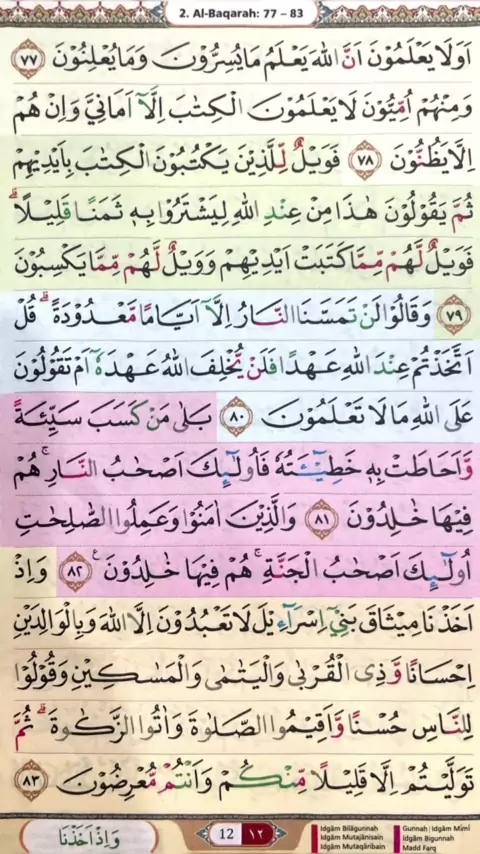 2. Al-Baqarah: 77 – 83
اَوَلَا يَعْلَمُوْنَ اَنَّ اللّٰهَ يَعْلَمُ مَا يُسِرُّوْنَ وَمَا يُعْلِنُوْنَ ٧٧
وَمِنْهُمْ اُمِّيُّوْنَ لَا يَعْلَمُوْنَ الْكِتٰبَ اِلَّآ اَمَانِيَّ وَاِنْ هُمْ
اِلَّا يَظُنُّوْنَ ٧٨ فَوَيْلٌ لِّلَّذِيْنَ يَكْتُبُوْنَ الْكِتٰبَ بِاَيْدِيْهِمْ
ثُمَّ يَقُوْلُوْنَ هٰذَا مِنْ عِنْدِ اللّٰهِ لِيَشْتَرُوْا بِهٖ ثَمَنًا قَلِيْلًاۗ
فَوَيْلٌ لَّهُمْ مِّمَّا كَتَبَتْ اَيْدِيْهِمْ وَوَيْلٌ لَّهُمْ مِّمَّا يَكْسِبُوْنَ
٧٩ وَقَالُوْا لَنْ تَمَسَّنَا النَّارُ اِلَّآ اَيَّامًا مَّعْدُوْدَةًۗ قُلْ
اَتَّخَذْتُمْ عِنْدَ اللّٰهِ عَهْدًا فَلَنْ يُّخْلِفَ اللّٰهُ عَهْدَهٗٓ اَمْ تَقُوْلُوْنَ
عَلَى اللّٰهِ مَا لَا تَعْلَمُوْنَ ٨٠ بَلٰى مَنْ كَسَبَ سَيِّئَةً
وَّاَحَاطَتْ بِهٖ خَطِيْۤـَٔتُهٗ فَاُولٰۤىِٕكَ اَصْحٰبُ النَّارِۚ هُمْ
فِيْهَا خٰلِدُوْنَ ٨١ وَالَّذِيْنَ اٰمَنُوْا وَعَمِلُوا الصّٰلِحٰتِ
اُولٰۤىِٕكَ اَصْحٰبُ الْجَنَّةِۚ هُمْ فِيْهَا خٰلِدُوْنَ ࣖ ٨٢ وَاِذْ
اَخَذْنَا مِيْثَاقَ بَنِيْٓ اِسْرَاۤءِيْلَ لَا تَعْبُدُوْنَ اِلَّا اللّٰهَ وَبِالْوَالِدَيْنِ
اِحْسَانًا وَّذِى الْقُرْبٰى وَالْيَتٰمٰى وَالْمَسٰكِيْنِ وَقُوْلُوْا
لِلنَّاسِ حُسْنًا وَّاَقِيْمُوا الصَّلٰوةَ وَاٰتُوا الزَّكٰوةَۗ ثُمَّ
تَوَلَّيْتُمْ اِلَّا قَلِيْلًا مِّنْكُمْ وَاَنْتُمْ مُّعْرِضُوْنَ ٨٣
وَاِذْ اَخَذْنَا
12 ١٢
Idgām Bilāgunnah
Idgām Mutajānisain
Idgām Mutaqāribain
Gunnah | Idgām Mimī
Idgām Bigunnah
Madd Farq